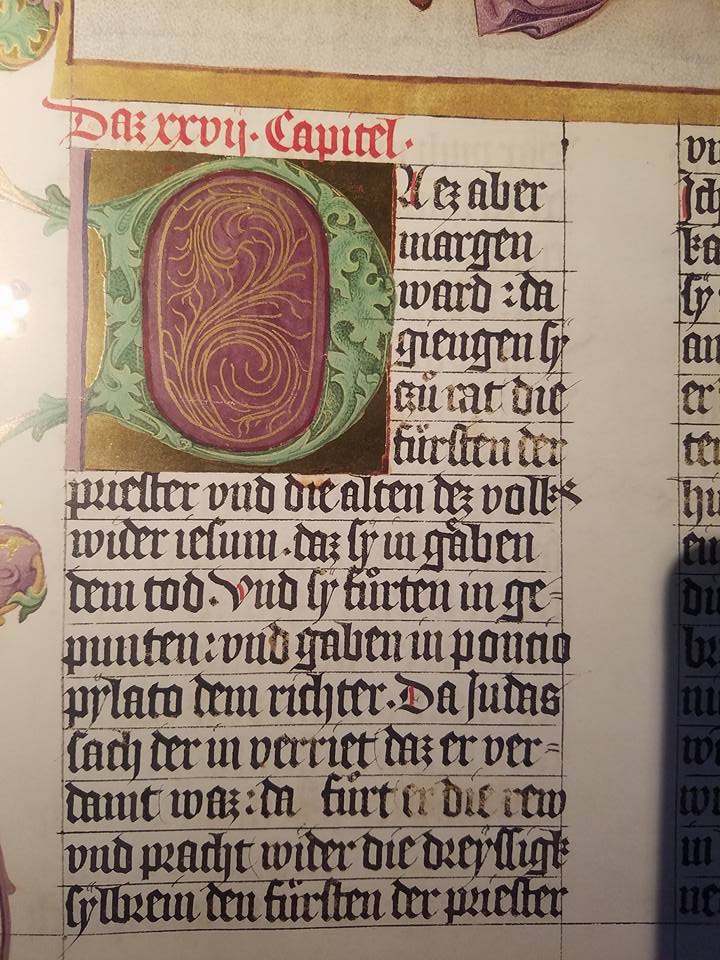 Daz xxvij. Capitel.
DA ez aber
margen
ward : da
giengen sy
czů rat die
fürsten der
priester vnd die alten dez volks
wider iesum. daz sy in gäben
dem tod. Vnd sy fůrten in ge=
punten : vnd gaben in poncio
pylato dem richter. Da Judas
sach der in verriet daz er ver=
damt waz : da fůrt er die rew
vnd pracht wider die dreÿssigk
sylbrein den fürsten der priester
vn
Ich
ka
sy
an
er
ten
hi
ein
du
br
ni
wi
wi
in
ne